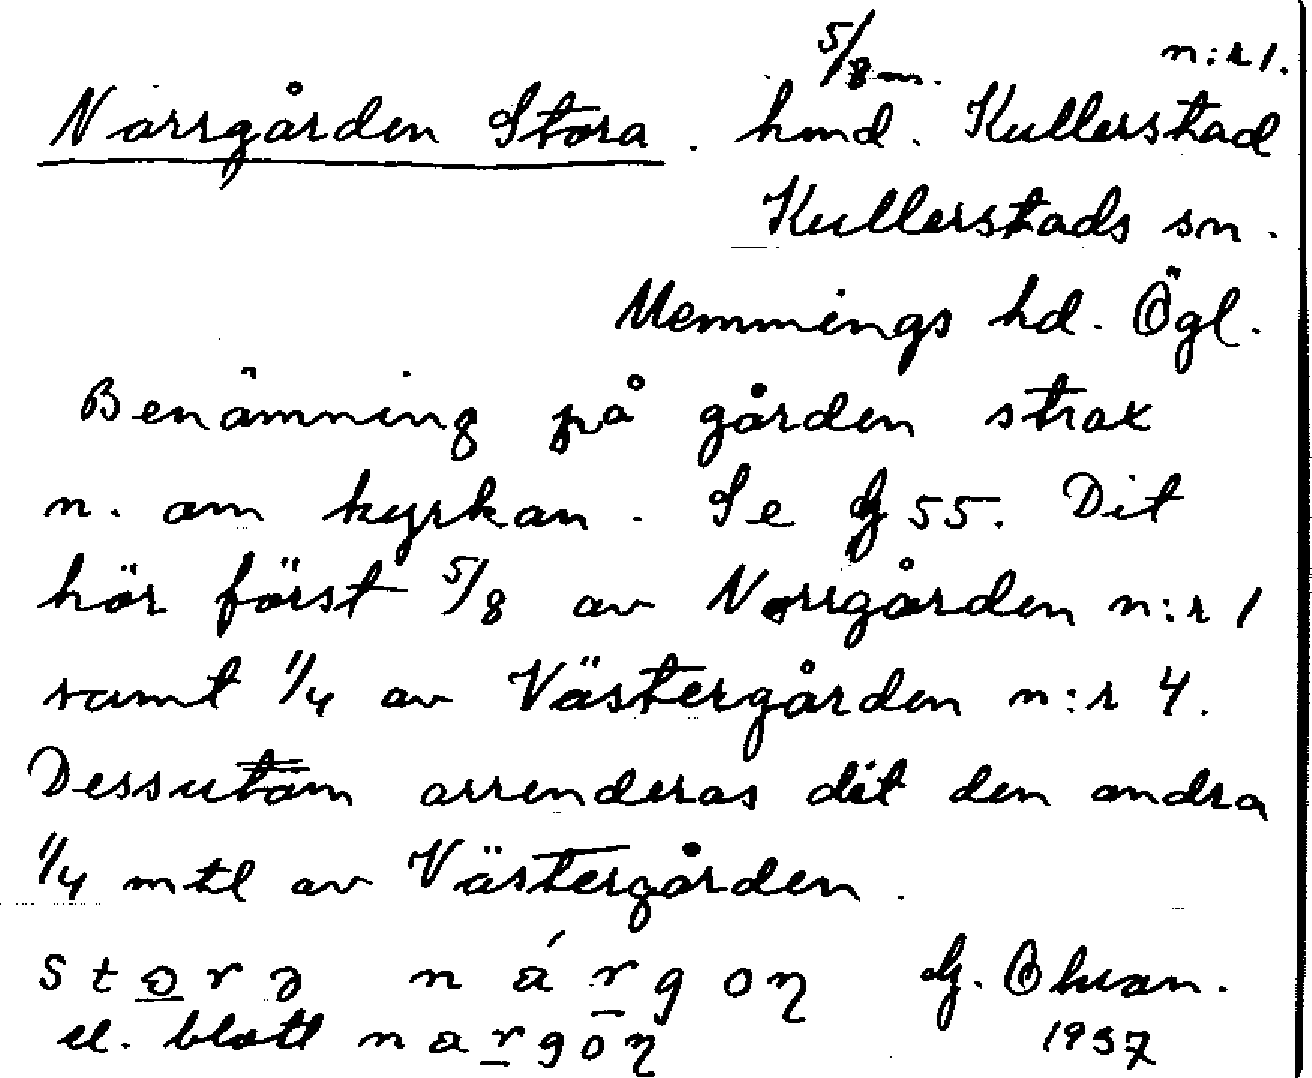 5/8 m. n:r 1.
Norrgården Stora. hmd. Kullerstad
Kullerstads sn.
Memmings hd. Ögl.
Benämning på gården strax
n. om kyrkan. Se G 55. Dit
hör först 5/8 av Norrgården n:r 1
samt 1/4 av Västergården n:r 4.
Dessutom arrenderas dit den andra
1/4 mtl av Västergården.
G. Ohson.
el. blott
1937